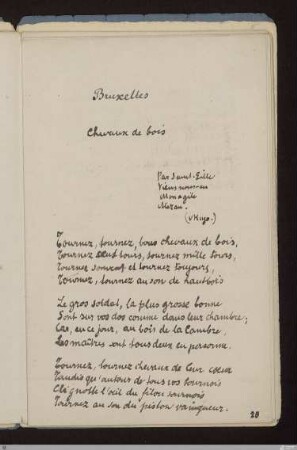 Bruxelles
Chevaux de bois
Par Saint-Gille
Viens nous-en
Mon agile
Alezan.
(V. Hugo.)
Tournez, tournez, bons chevaux de bois,
Tournez cent tours, tournez mille tours,
Tournez souvent et tournez toujours,
Tournez, tournez au son de hautbois
Le gros soldat, la plus grosse bonne
Sont sur vos dos comme dans leur chambre;
Car, en ce jour, au bois de la Cambre,
Les maîtres sont tous deux en personne.
Tournez, tournez chevaux de leur cœur
Tandis qu'autour de tous vos tournois
Clignotte l'œil du filou sournois
Tournez au son du piston vainqueur.
28